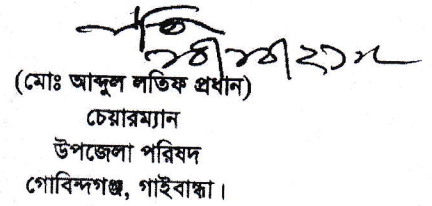 (মোঃ আব্দুল লতিফ প্রধান)
চেয়ারম্যান
উপজেলা পরিষদ
গোবিন্দগঞ্জ, গাইবান্ধা।